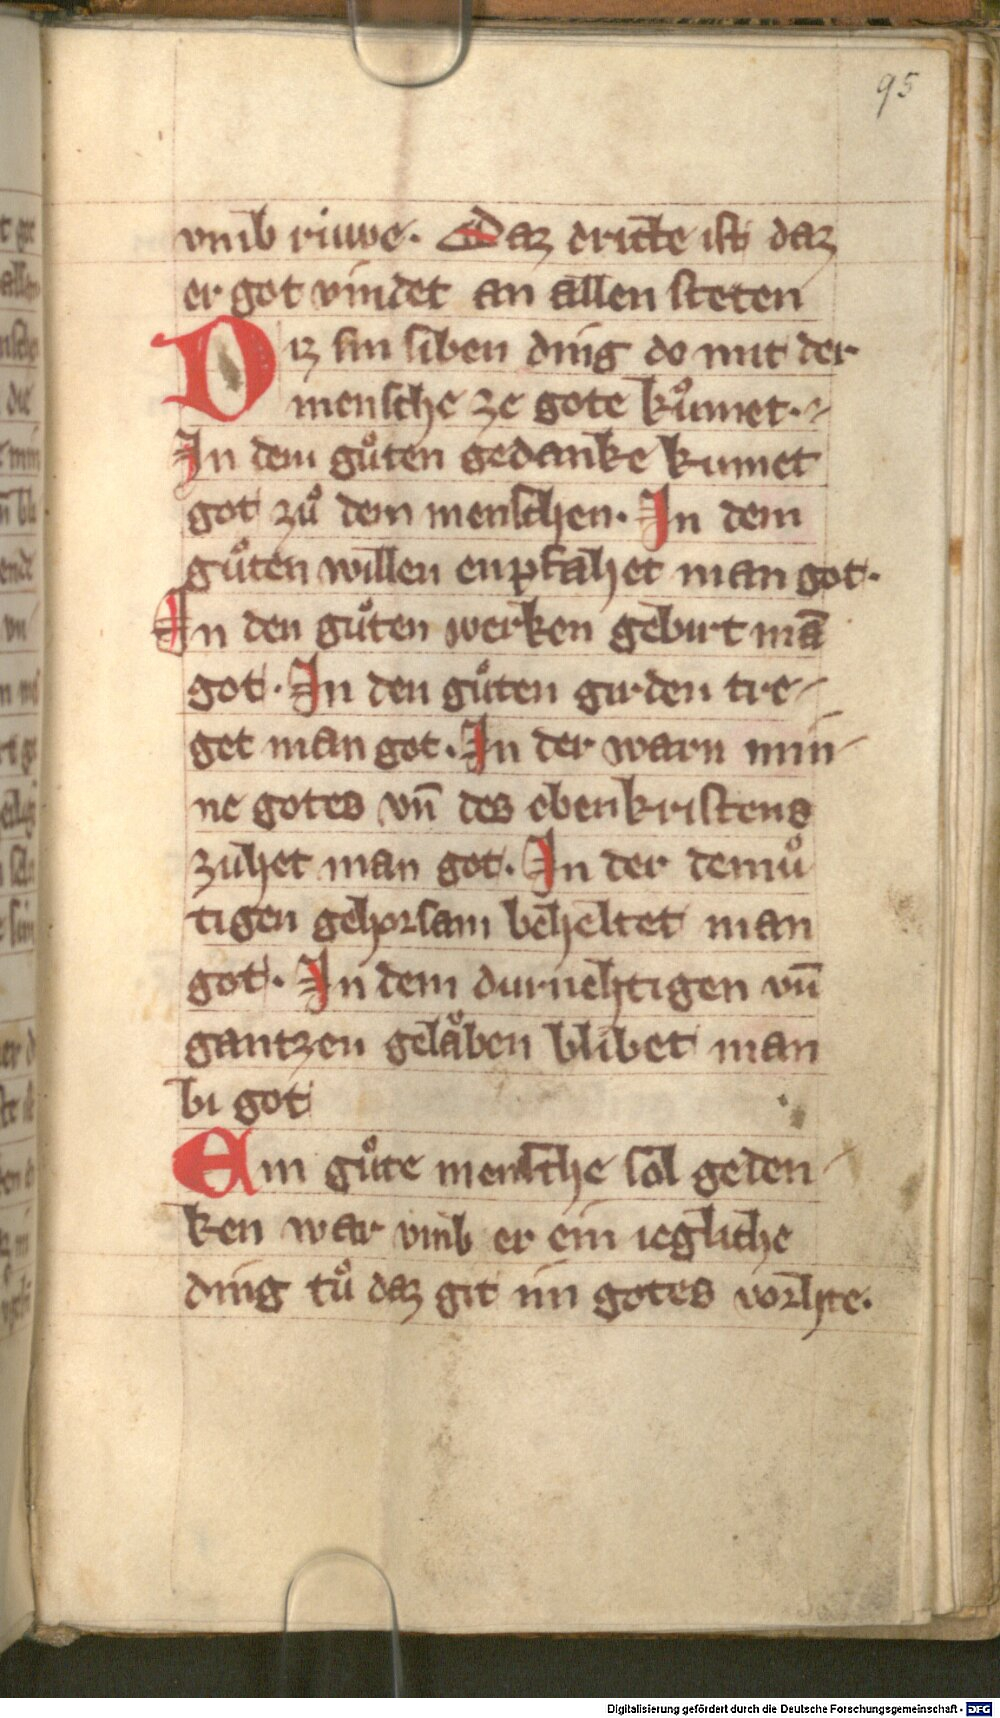 95
vmb riuwe. Daz dritte ist daz
er got vindet an allen steten
Diz sin siben ding do mit der
mensche ze gote kuͦmet.
In dem guͦten gedanke kumet
got zuͦ dem menschen. In dem
guͦten willen enpfahet man got.
In den guͦten werken gebirt mā
got. In den guͦten girden tre-
get man got. In der warn min-
ne gotes vn̄ des ebenkristens
zuhet man got. In der demuͦ
tigen gehorsam beheltet man
got. In dem durnehtigen vn̄
gantzen gelaͦben blibet man
bi got
Ein guͦte mensche sol geden-
ken war vmb er ein iegliche
ding tuͦ daz git im gotes vorhte.
Digitalisierung gefördert durch die Deutsche Forschungsgemeinschaft - DFG